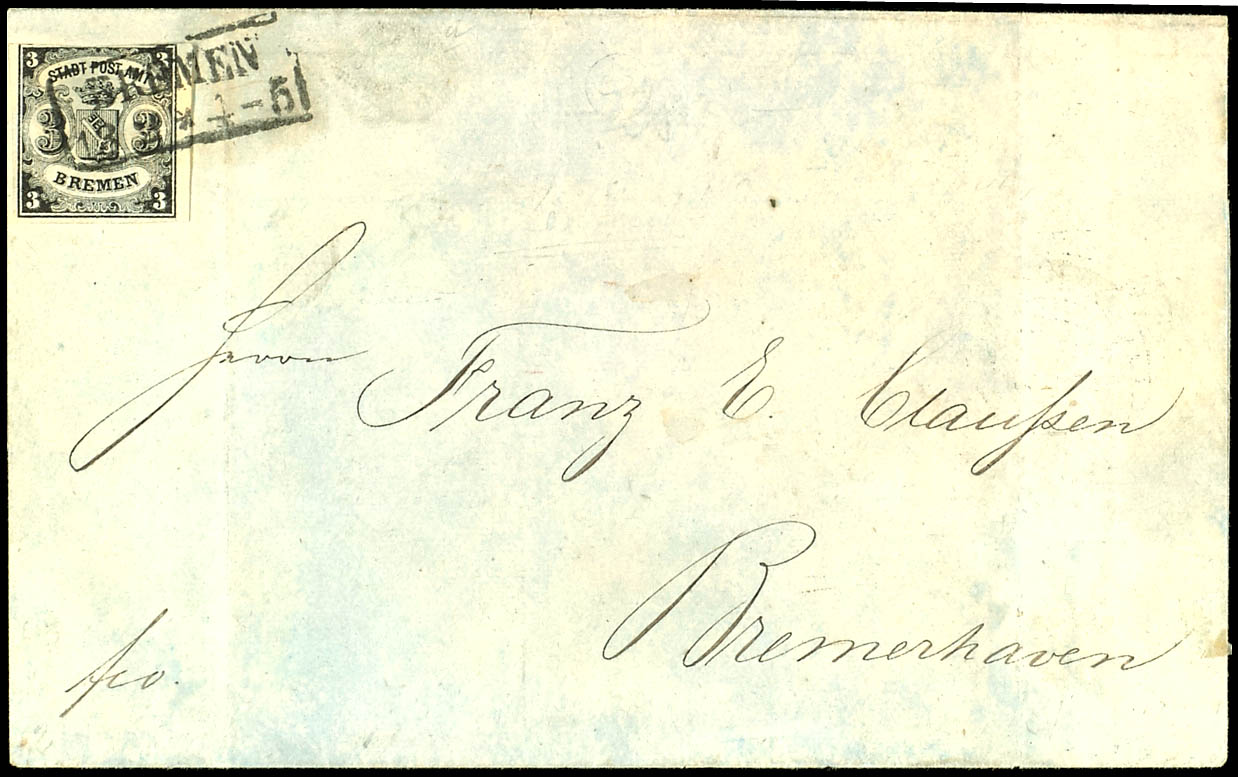 3 3
STADT POST AMT
BREMEN
4-5
3 3
BREMEN
3 3
Herrn Franz E. Claußen
Bremerhaven
fco.